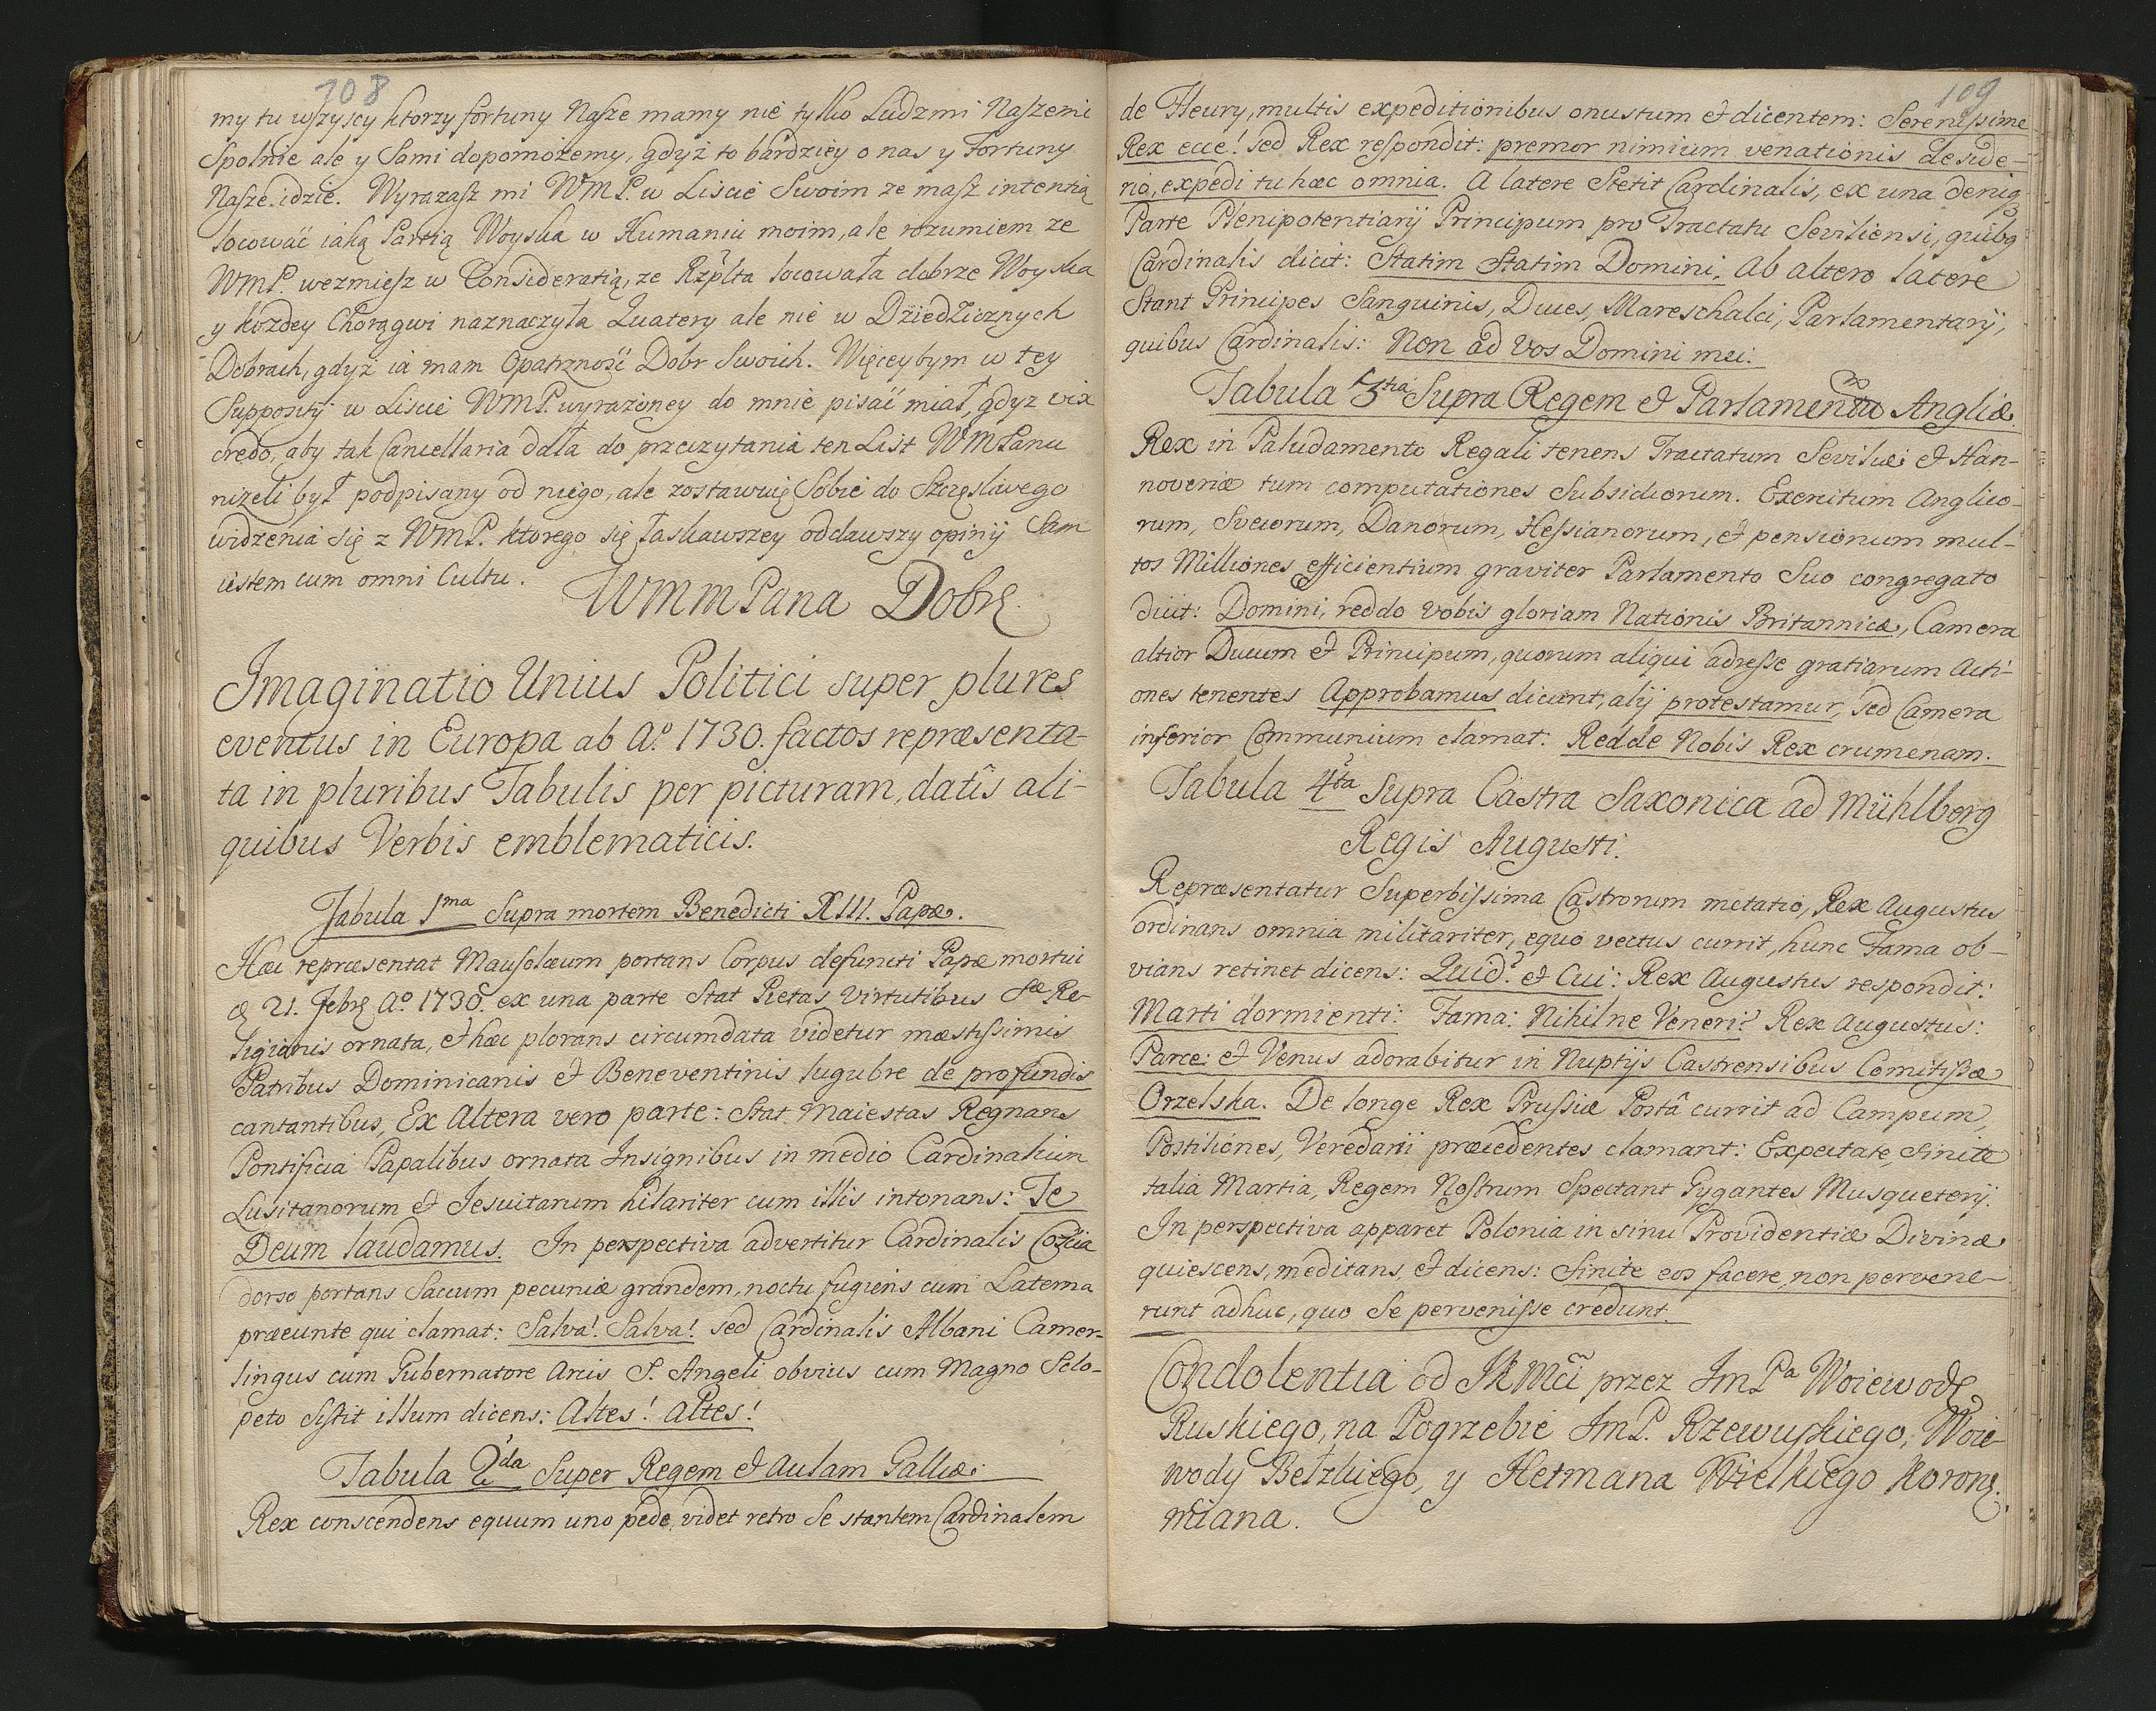 108
my tu wszyscy ktorzy fortuny Nasze mamy nie tylko Ludzmi Naszemi
Spolnie ale y Sami dopomożemy, gdyż to bardziey o nas y Fortuny
Nasze idzie. Wyrazasz mi WMP. w Liscie Swoim ze masz intentią
locować iaką Partią Woyska w Humaniu moim, ale rozumiem ze
WMP. wezmiesz w Consideratią, ze Rzplta locowała dobrze Woyska
y kozdey Chorągwi naznaczyła Quatery ale nie w Dziedzicznych
Dobrach, gdyż ia mam Opatrzność Dobr Swoich. Więcey bym w tey
Supposity w Liscie WMP. wyrażoney do mnie pisać miał, gdyz vix
credo, aby tak Cancellaria dała do przeczytania ten List WMPanu
nizeli był podpisany od niego, ale zostawuię Sobie do Szczęsliwego
widzenia się z WMP. ktorego się łaskawszey oddawszy opinij Sam
iestem cum omni Cultu.
WMM Pana Dobr
Imaginatio Unius Politici super plures
eventus in Europa ab Ao. 1730. factos repræsenta-
ta in pluribus Tabulis per picturam, datîs ali-
quibus Verbis emblematicis.
Tabula 1ma Supra mortem Benedicti XIII. Papæ.
Hæc repræsentat Mausolæum portans Corpus defuncti Papæ mortui
21. Febr Ao. 1730. ex una parte Stat Pietas Virtutibus Sæ Re-
ligionis ornata, et hæc plorans circumdata videtur mæstissimis
Patribus Dominicanis et Beneventinis lugubre de profundis
cantantibus, Ex Altera vero parte: Stat Maiestas Regnans
Pontificia Papalibus ornata Insignibus in medio Cardinalium
Lusitanorum et Jesuitarum hilariter cum illis intonans: Te
Deum laudamus. In perspectiva advertitur Cardinalis Coscia
dorso portans Saccum pecuniæ grandem, noctu fugiens cum Laterna
præeunte qui clamat: Salva! Salva! sed Cardinalis Albani Camer-
lingus cum Gubernatore Arcis S. Angeli obvius cum Magno Sclo-
peto Sistit illum dicens: Altes! Altes!
Tabula 2da Super Regem et Aulam Galliæ.
Rex conscendens equum uno pede, videt retro Se stantem Cardinalem
109
de Fleury, multis expeditionibus onustum et dicentem: Serenissime
Rex ecce! sed Rex respondit: premor nimium venationis deside-
rio, expedi tu hæc omnia. A latere Stetit Cardinalis, ex una deniq
Parte Plenipotentiarij Principum pro Tractatu Seviliensi, quibq
Cardinalis dicit: Statim Statim Domini, Ab altero latere
Stant Principes Sanguinis, Duces, Mareschalci, Parlamentarij,
quibus Cardinalis: Non ad Vos Domini mei.
Tabula 3tia Supra Regem et Parlamentu Angliæ.
Rex in Paludamento Regali tenens Tractatum Seviliæ et Han-
noveriæ tum computationes Subsidiorum. Exercitum Anglico-
rum, Svecorum, Danorum, Hessianorum, et pensionum mul-
tos Milliones efficientium graviter Parlamento Suo congregato
dicit: Domini, reddo vobis gloriam Nationis Britannicæ, Camera
altior Ducum et Principum, quorum aliqui adresse gratiarum Acti-
ones tenentes Approbamus dicunt, alij protestamur, sed Camera
inferior Communium clamat: Redde Nobis Rex crumenam.
Tabula 4ta Supra Castra Saxonica ad Mühlberg
Regis Augusti.
Repræsentatur Superbissima Castrorum metatio, Rex Augustus
ordinans omnia militariter, equo vectus currit, hunc Fama ob-
vians retinet dicens: Quid? et Cui: Rex Augustus respondit:
Marti dormienti: Fama: Nihilne Veneri? Rex Augustus:
Parce: et Venus adorabitur in Nuptijs Castrensibus Comitissæ
Orzelska. De longe Rex Prussiæ Postâ currit ad Campum,
Postiliones, Veredarii præcedentes clamant: Expectate, Sinite
talia Martia, Regem Nostrum Spectant Gygantes Musqueterij.
In perspectiva apparet Polonia in sinu Providentiæ Divinæ
quiescens, meditans, et dicens: Sinite eos facere, non pervene-
runt adhuc, quo Se pervenisse credunt.
Condolentia od JKMci przez JmPa Woiewodę
Ruskiego, na Pogrzebie JmP. Rzewuskiego, Woie-
wody Bełzkiego, y Hetmana Wielkiego Koron.
miana.